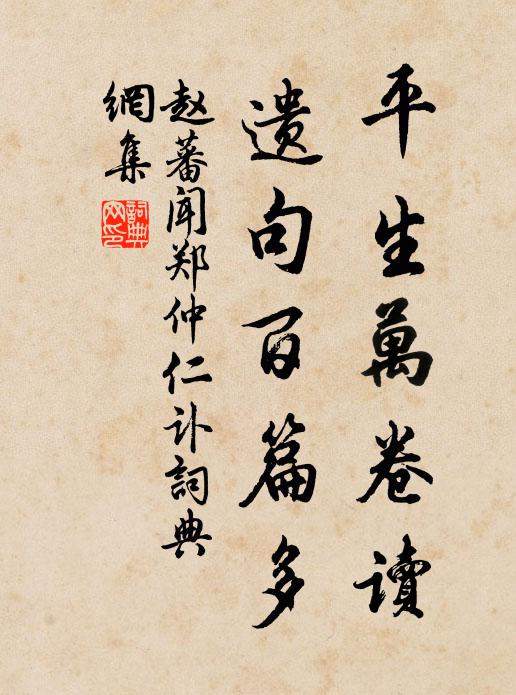 平生萬卷讀
遗句百篇多
赵蕃闻郑仲仁讣詞典
網集
詞典
网印